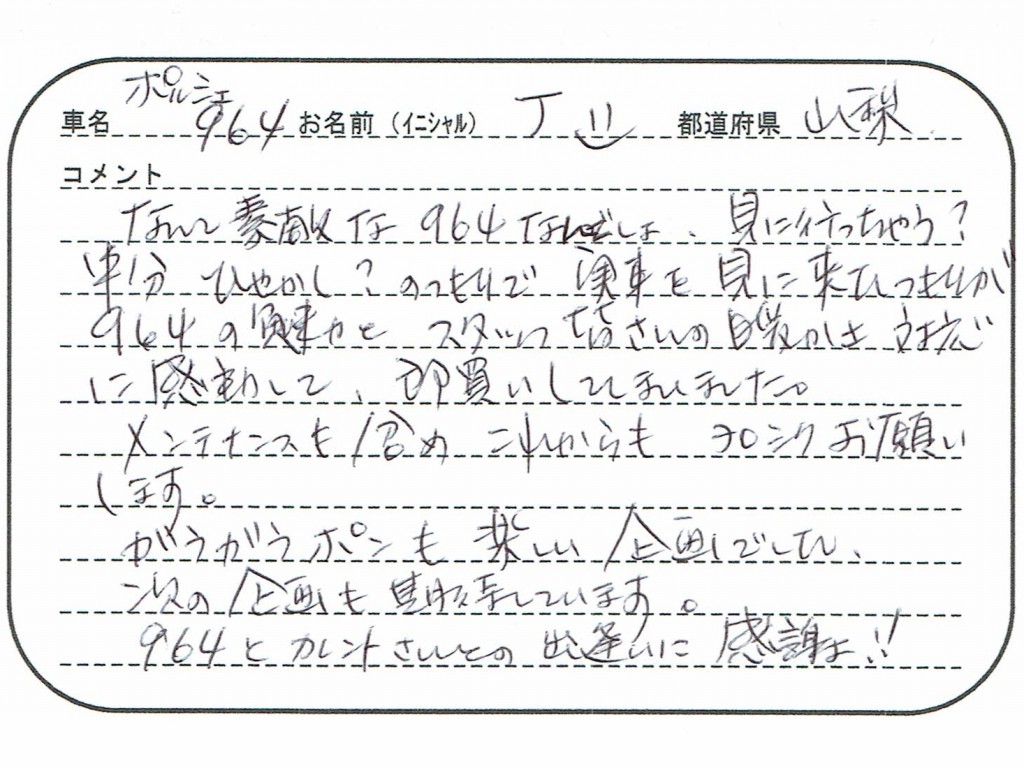 車名 ポルシェ 964 お名前(イニシャル) T 都道府県 山梨
コメント
なんて素敵な964なんでしょ、見に行っちゃう?
半分ひやかし?のつもりで実車を見に来たつもりが
964の魅力とスタッフ皆さんの暖かさ対応
に感動して、即買いしてしまいました。
メンテナンスも含めこれからもヨロシクお願い
します。
がらがらポンも楽しい企画でした、
次の企画も期待しています。
964とカレントさんとの出逢いに感謝よ!!